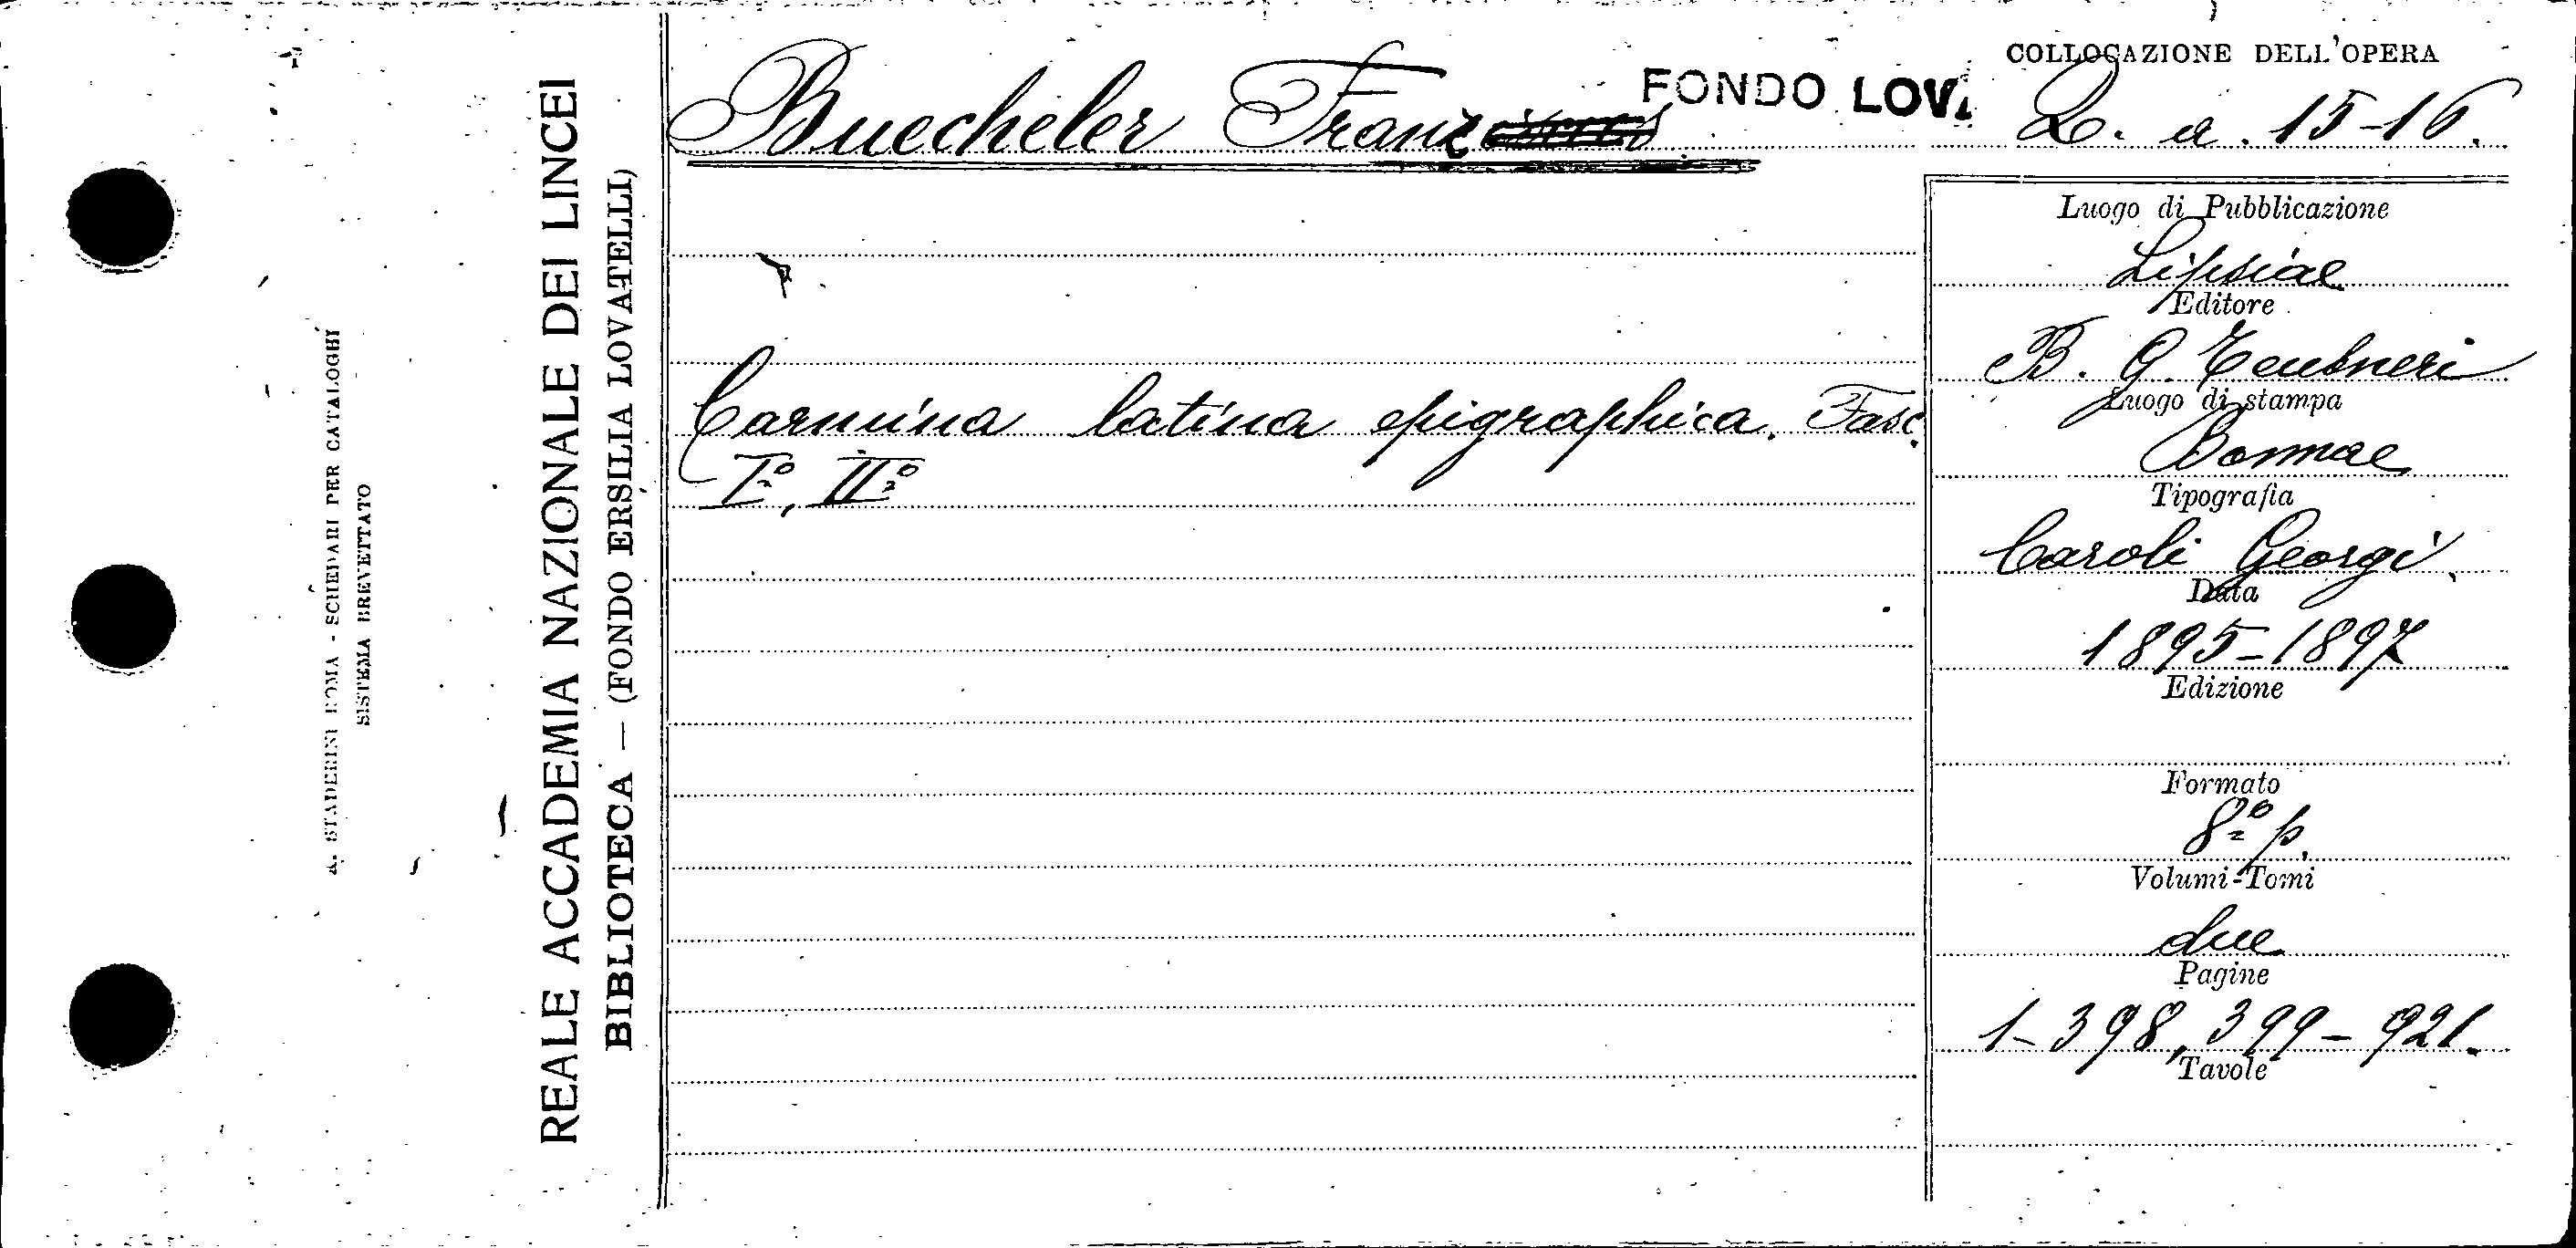 A. STADERINI ROMA - SCHEDARI PER CATALOGHI
SISTEMA BREVETTATO
REALE ACCADEMIA NAZIONALE DEI LINCEI
BIBLIOTECA — (FONDO ERSILIA LOVATELLI)
Buecheler Franz
FONDO LOV.
Carmina latina epigraphica. Fasc.
Iº, IIº
COLLOCAZIONE DELL'OPERA
2. a. 15-16.
Luogo di Pubblicazione
Lipsiae
Editore
B. G. Teubneri
Luogo di stampa
Bonnae
Tipografia
Caroli Georgi.
Data
1895-1897
Edizione
Formato
8º p.
Volumi-Tomi
due
Pagine
1-398, 399-921.
Tavole